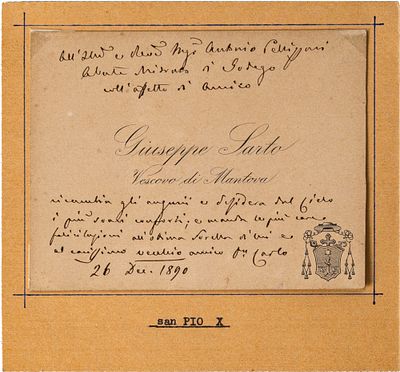 All'Ill.mo e Rev.mo Mgr Antonio
Abate Mitrato di Godego
coll'affetto di amico
Giuseppe Sarto
Vescovo di Mantova
ricambia gli augurii e desidera dal Cielo
i più soavi conforti, e manda le più care
felicitazioni all'ottima Sorella di Lui e
al carissimo vecchio amico Dn Carlo
26 Dec. 1890
san PIO X